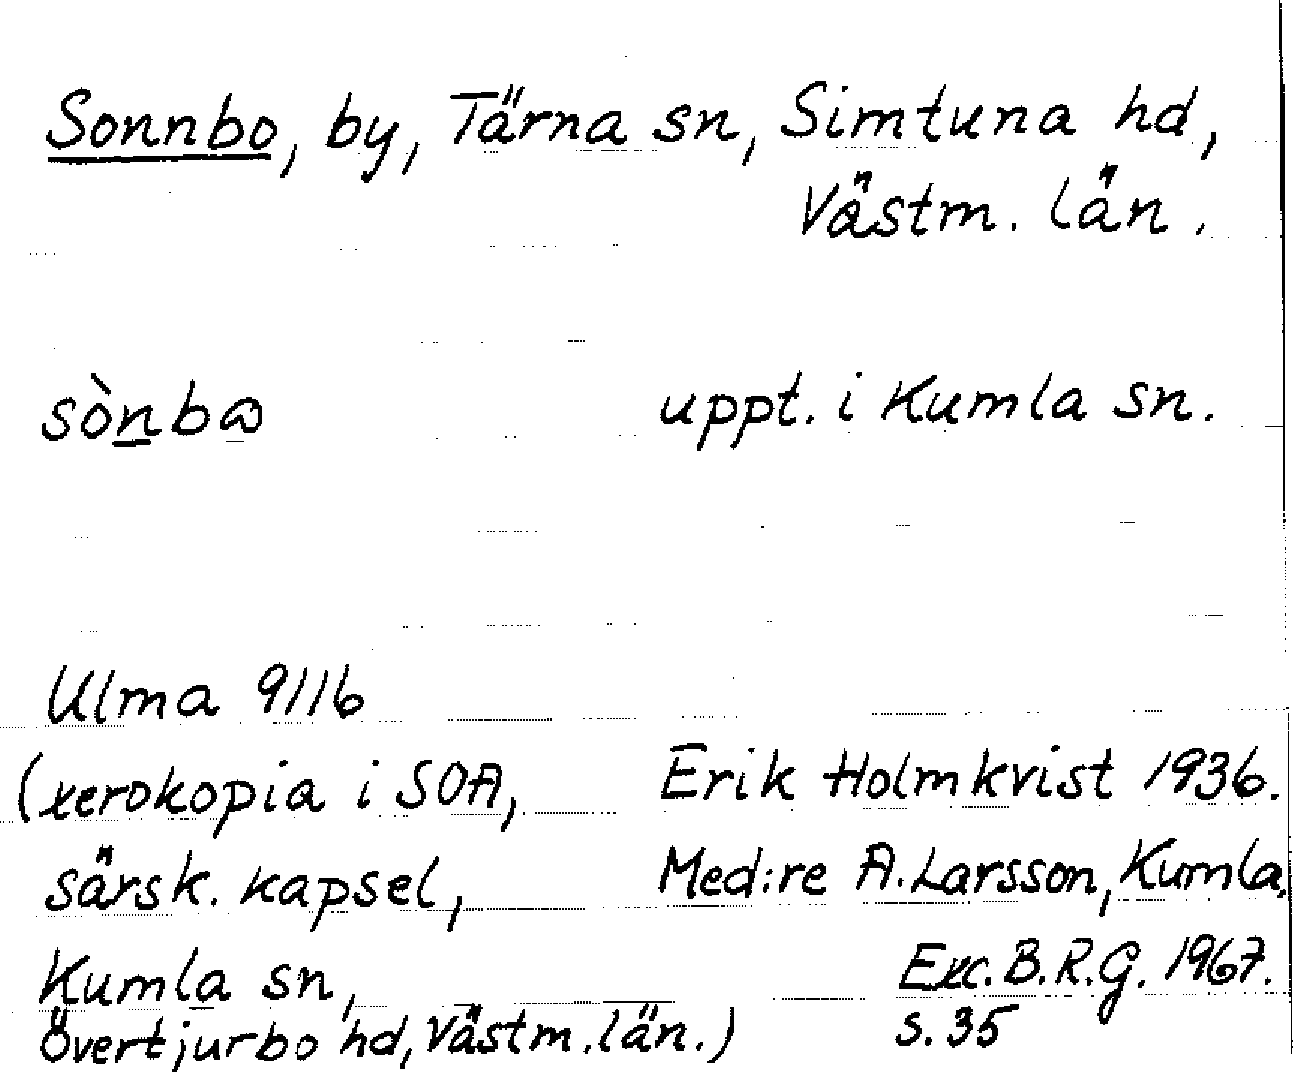 Sonnbo, by, Tärna sn, Simtuna hd,
Västm. län.
sònbɷ uppt. i Kumla sn.
Ulma 9116
(xerokopia i SOA, Erik Holmkvist 1936.
särsk. kapsel, Med:re A. Larsson, Kumla.
Kumla sn, Exc. B.R.G. 1967.
Övertjurbo hd, Västm. län.) s. 35